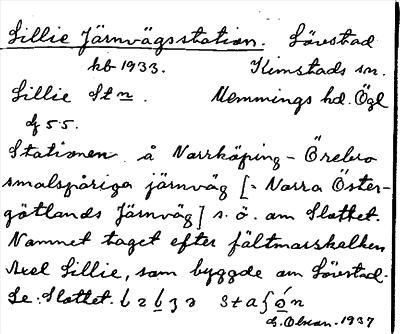 Lillie Järnvägsstation. Lövstad
kb 1933. Kimstads sn.
Lillie St n. Memmings hd. Ögl
df 5.5.
Stationen å Norrköping - Örebro
smalspåriga järnväg [= Norra Öster-
götlands Järnväg] s. ö. om Slottet.
Namnet taget efter fältmarskalken
Axel Lillie, som byggde om Lövstad.
Se: Slottet.
G. Olson. 1937